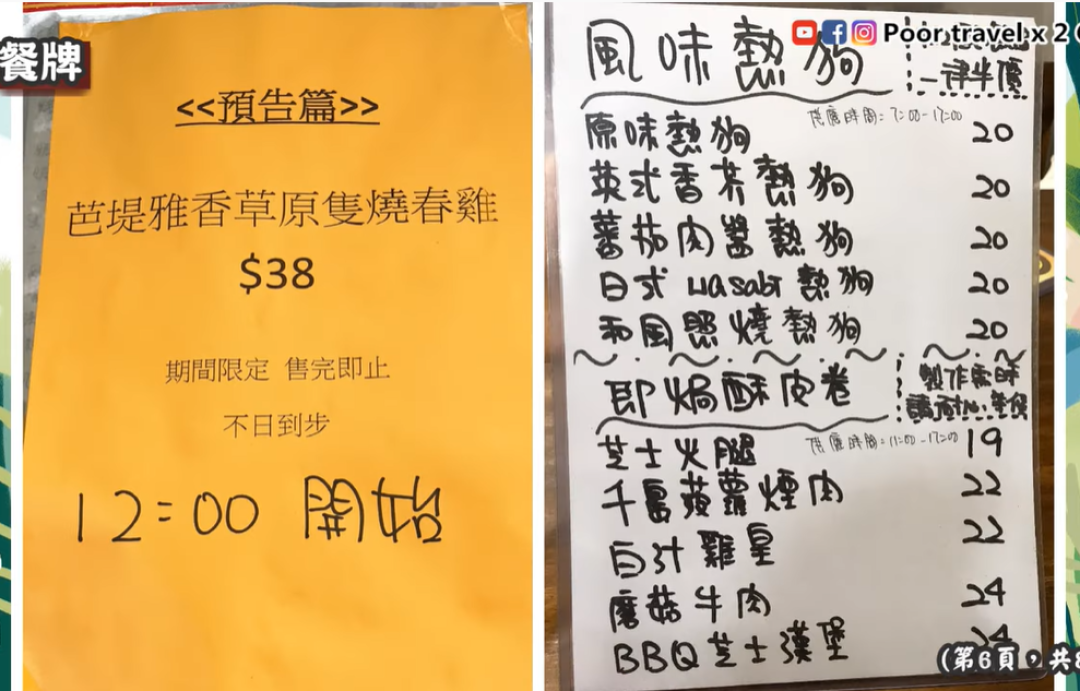 餐牌
<<預告篇>>
芭堤雅香草原隻燒春雞
$38
期間限定 售完即止
不日到步
12:00 開始
Poor travel x 2
風味熱狗
一律半價
供應時間:7:00-17:00
原味熱狗 20
英式香芥熱狗 20
蕃茄肉醬熱狗 20
日式 wasabi 熱狗 20
和風照燒熱狗 20
即焗酥皮卷
製作需時
請耐心等候
供應時間:11:00-17:00
芝士火腿 19
千島菠蘿煙肉 22
白汁雞皇 22
磨菇牛肉 24
BBQ芝士漢堡 24
(第6頁,共8